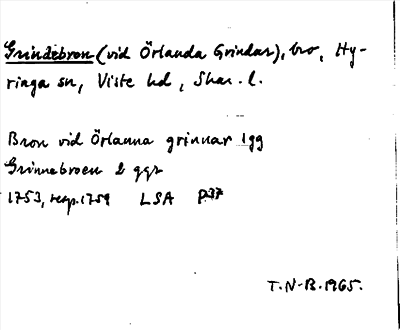 Grindebron (vid Örlanda Grindar), bro, Hy-
ringa sn, Viste hd, Skar. l.
Bron vid Örlanna grinnar 1 gg
Grinnebroen 2 ggr
1753, resp. 1759 LSA P37
T.N-B. 1965.